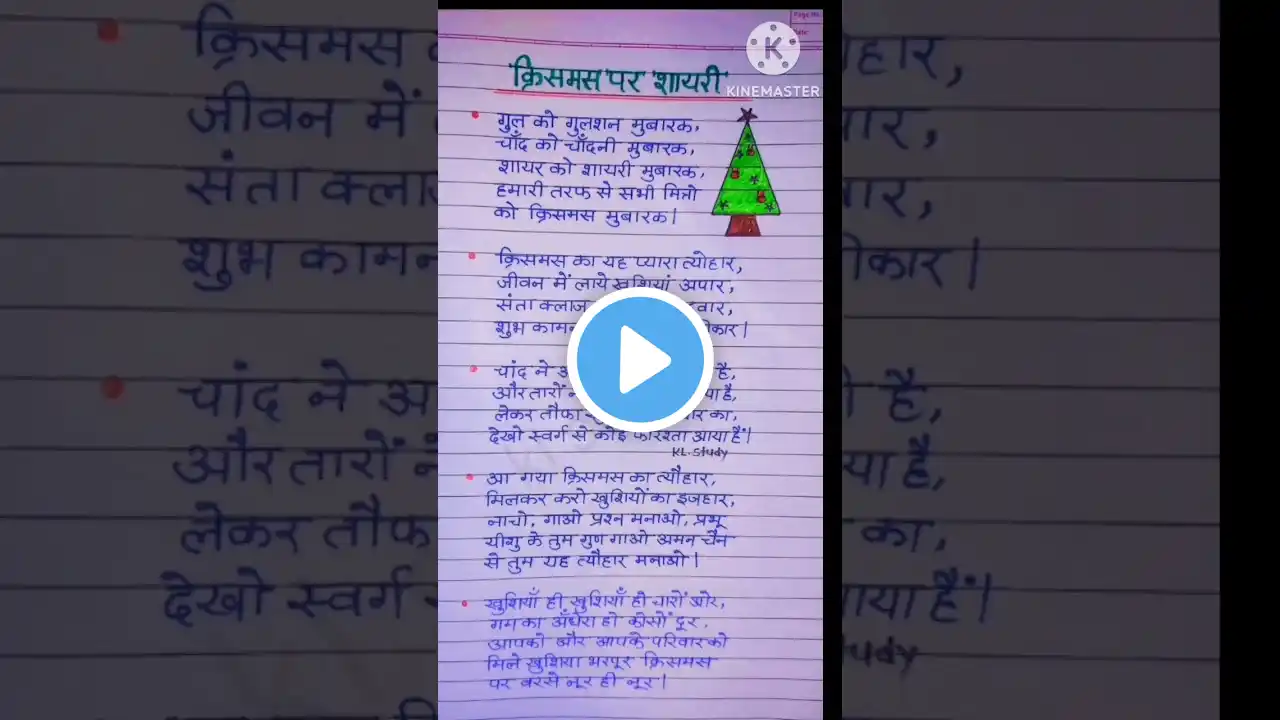 Page No.
Date:
KINEMASTER
क्रिसमस पर शायरी
गुल को गुलशन मुबारक,
चाँद को चाँदनी मुबारक,
शायर को शायरी मुबारक,
हमारी तरफ से सभी मित्रो
को क्रिसमस मुबारक।
क्रिसमस का यह प्यारा त्योहार,
जीवन में लाये खुशियां अपार,
संता क्लाज
शुभ कामन
चांद ने
और तारों
लेकर तौफा का,
देखो स्वर्ग से कोई फरिश्ता आया हैं।
KL.Study
आ गया क्रिसमस का त्यौहार,
मिलकर करो खुशियों का इजहार,
नाचो, गाओ प्रश्न मनाओ, प्रभू
यीशु के तुम गुण गाओ अमन चैन
से तुम यह त्यौहार मनाओ।
खुशियाँ ही खुशियाँ हो चारों ओर,
गम का अँधेरा हो कोसों दूर,
आपको और आपके परिवार को
मिले खुशिया भरपूर क्रिसमस
पर बरसे नूर ही नूर।